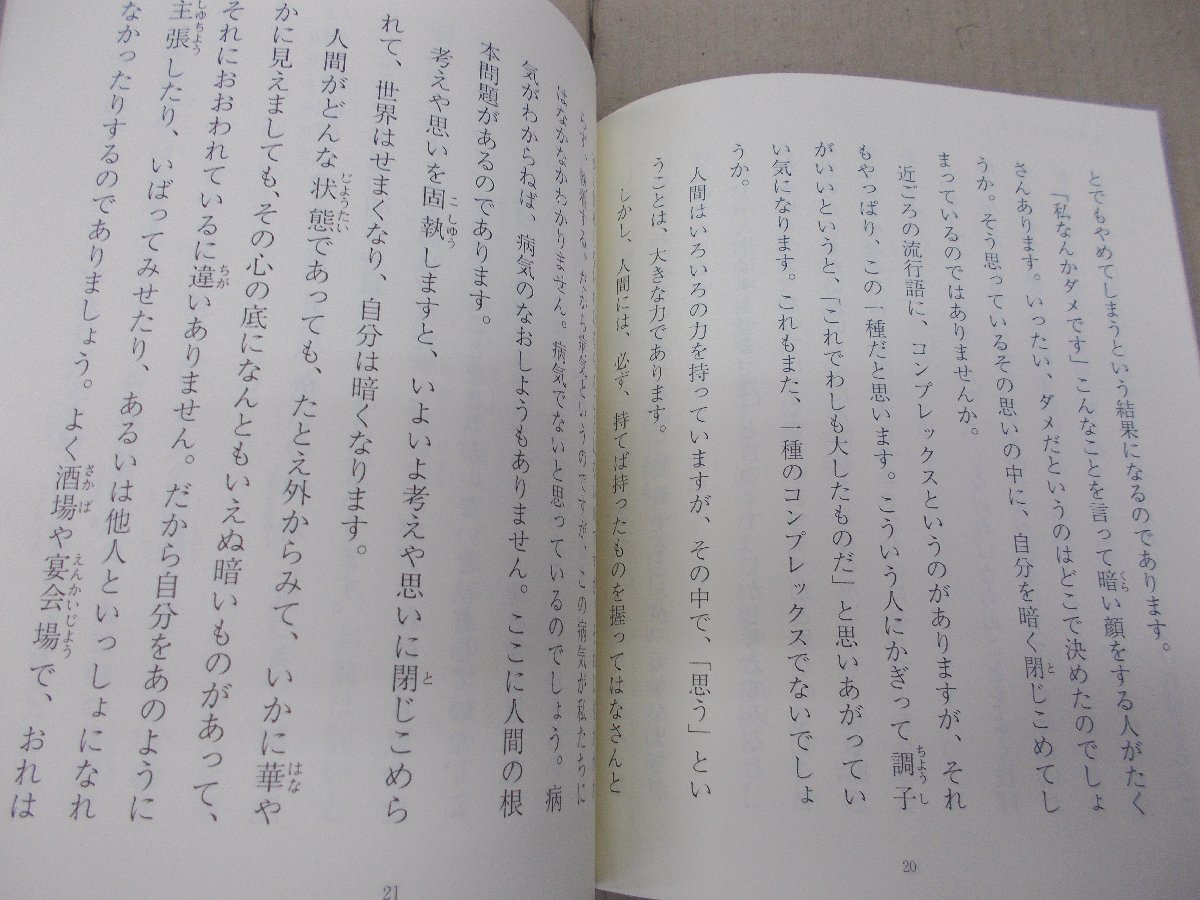 とでもやめてしまうという結果になるのであります。
「私なんかダメです」こんなことを言って暗い顔をする人がたく
さんあります。いったい、ダメだというのはどこで決めたのでしょ
うか。そう思っているその思いの中に、自分を暗く閉じこめてし
まっているのではありませんか。
近ごろの流行語に、コンプレックスというのがありますが、それ
もやっぱり、この一種だと思います。こういう人にかぎって調子
がいいというと、「これでわしも大したものだ」と思いあがってい
い気になります。これもまた、一種のコンプレックスでないでしょ
うか。
人間はいろいろの力を持っていますが、その中で、「思う」とい
うことは、大きな力であります。
しかし、人間には、必ず、持てば持ったものを握ってはなさんと
20
この病気が私たちに
はなかなかわかりません。病気でないと思っているのでしょう。病
気がわからねば、病気のなおしようもありません。ここに人間の根
本問題があるのであります。
考えや思いを固執しますと、いよいよ考えや思いに閉じこめら
れて、世界はせまくなり、自分は暗くなります。
人間がどんな状態であっても、たとえ外からみて、いかに華や
かに見えましても、その心の底になんともいえぬ暗いものがあって、
それにおおわれているに違いありません。だから自分をあのように
主張したり、いばってみせたり、あるいは他人といっしょになれ
なかったりするのでありましょう。よく酒場や宴会場で、おれは
21